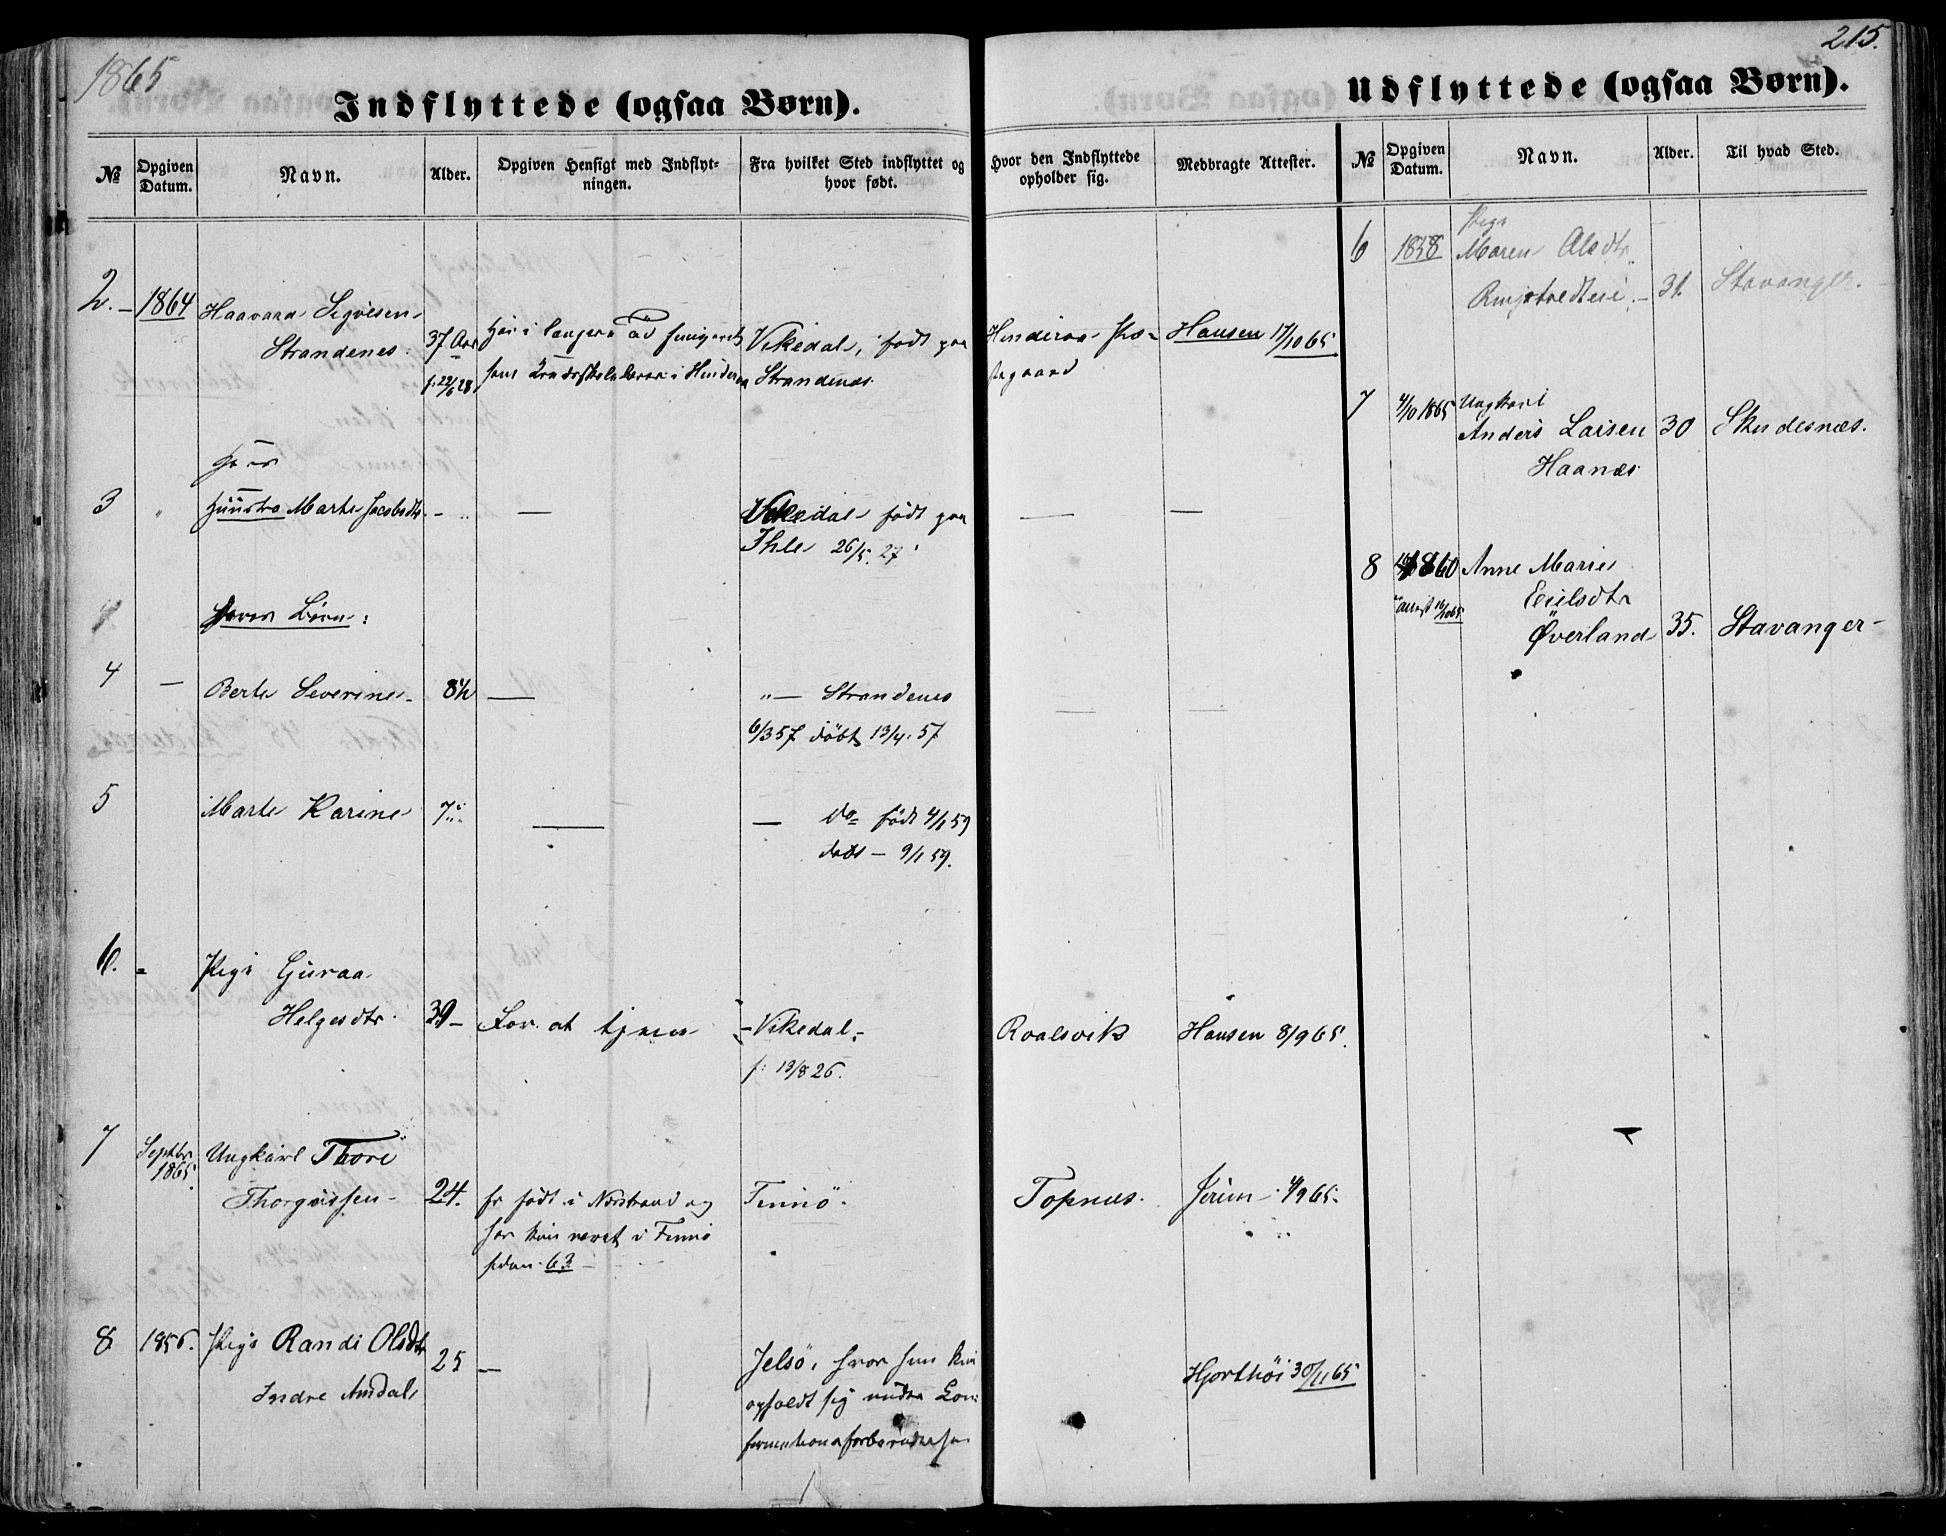 1865
215.
Indflyttede (ogsaa Børn).
Udflyttede (ogsaa Børn).
№ Opgiven Datum. Navn. Alder. Opgiven Hensigt med Indflytningen. Fra hvilket Sted indflyttet og hvor født. Hvor den Indflyttede opholder sig. Medbragte Attester.
№ Opgiven Datum. Navn. Alder. Til hvad Sted.
2. 1864 Haavard Sigvesen
Strandenes. 37 Aar
f. 22/6 28
Har i længere Tid fungeret
som Kredsskolelærer i Hinderaa
Vikedal, født paa
Strandenes.
Hinderaa Præ-
stegaard
Hansen 17/10 65.
3 " Hans
Hustro Marte Jacobsdtr. - — Vikedal født paa
Ihle 26/5. 27
— —
Deres Børn:
4 — Berte Severine 8½ — " — Strandenes
6/3 57 døbt 13/4. 57
5 Marte Karine 7 — — do født 4/1 59
døbt — 9/1 59.
6. - Pige Guraa
Helgesdtr. 39 - For at tjene - Vikedal.
f: 13/8 26.
Roalsvik Hansen 8/9 65.
7 Septbr 1865. Ungkarl Thore
Thorgersen 24. Er født i Nærstrand og
har kun været i Finnö
siden 63
Finnö. Topnes. 4/9 65.
8. 1856. Pige Randi Olsdtr
Indre Amdal 25 — Jelsö, hvor hun kun
opholdt sig under Con-
firmationsforberedelsen
Hjorthöi 30/11 65
6 1858 Pige
Maren Olsdtr.
31. Stavanger.
7 4/10 1865 Ungkarl
Anders Larsen 30 Skudesnæs.
Haanes
8 1860 Anne Marie
Attest 16/10 65 Eielsdtr
Øverland 35. Stavanger